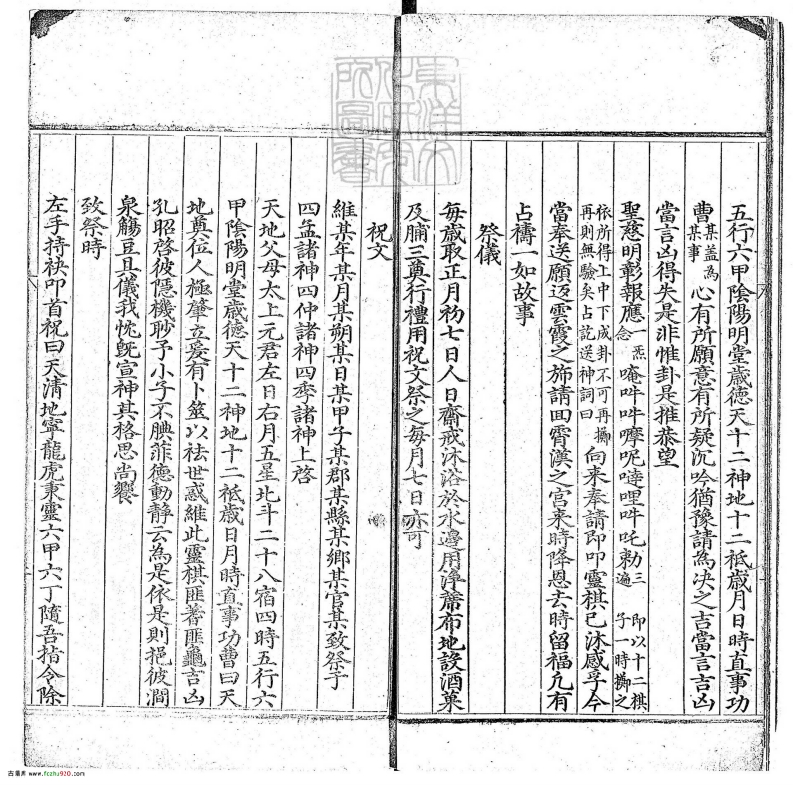 五行六甲陰陽明堂歲德天十二神地十二祇歲月日時直事功
曹某事某盖為心有所願意有所疑沉吟猶豫請為决之吉當言吉凶
當言凶得失是非惟卦是推恭望
聖慈明彰報應一炁念唵吽吽嚤呢噠哩吽吒勑三遍即以十二棋子一時擲之
依所得上中下成卦不可再擲再則無驗矣占訖送神詞曰向来奉請即叩靈棋已沐感孚今
當奉送願返雲霞之斾請回霄漢之宫来時降恩去時留福凢有
占禱一如故事
祭儀
每歲取正月初七日人日齋戒沐浴於水邊用浄蓆布地設酒菓
及脯三奠行禮用祝文祭之每月七日亦可
祝文
維某年某月某朔某日某甲子某郡某縣某鄉某官某致祭于
四孟諸神四仲諸神四季諸神上啓
天地父母太上元君左日右月五星北斗二十八宿四時五行六
甲陰陽明堂歲德天十二神地十二祇歲日月時直事功曹曰天
地奠位人極肇立爰有卜筮以祛世惑維此靈棋匪蓍匪龜吉凶
孔昭啓彼隱機眇予小子不腆菲德動静云為是依是則挹彼澗
泉觴豆且儀我忱既宣神其格思尚饗
致祭時
左手持袂叩首祝曰天清地寧龍虎秉靈六甲六丁隨吾指令除
古籍库 www.fczhu920.com